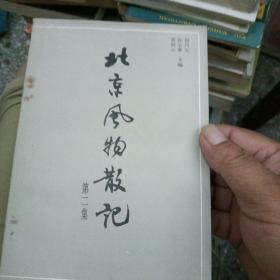 北京风物散记
第二集
主编